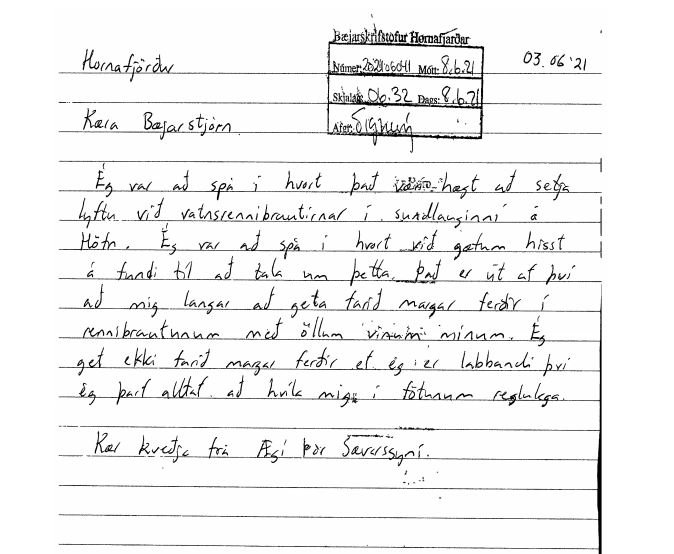 Bæjarskrifstofur Hornafjarðar
Hornafjörður
03.06'21
Númer: Mótt: 8.6.21
Skjalalykill: 06.32 Dags: 8.6.21
Kæra Bæjarstjórn.
Afgr: Sigrún
Ég var að spá í hvort það hægt að setja
lyftu við vatnsrennibrautirnar í sundlauginni á
Höfn. Ég var að spá í hvort við gætum hisst
á fundi til að tala um þetta. Það er út af því
að mig langar að geta farið margar ferðir í
rennibrautunum með öllum vinum mínum. Ég
get ekki farið margar ferðir ef ég er labbandi því
ég þarf alltaf að hvíla mig í fótunum reglulega.
Kær kveðja frá Ægi Þór Sævarssyni.